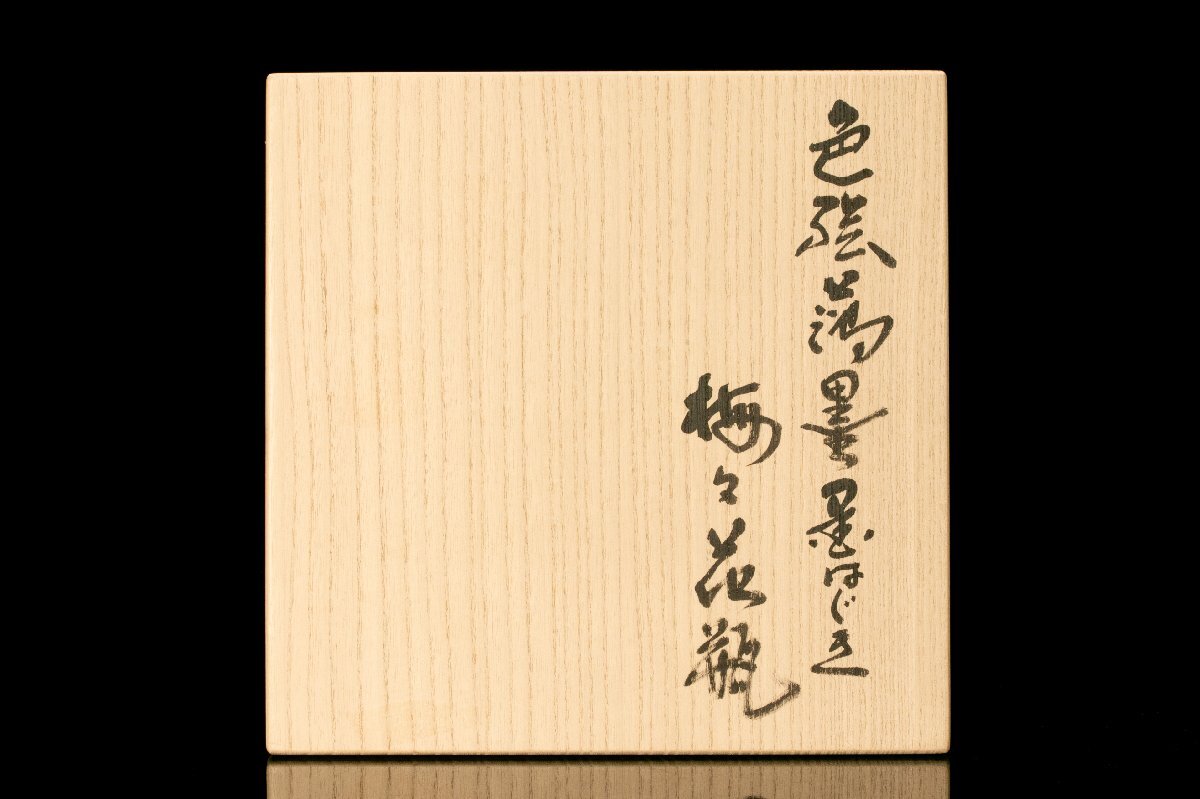 色絵薄墨墨はじき
梅文花瓶